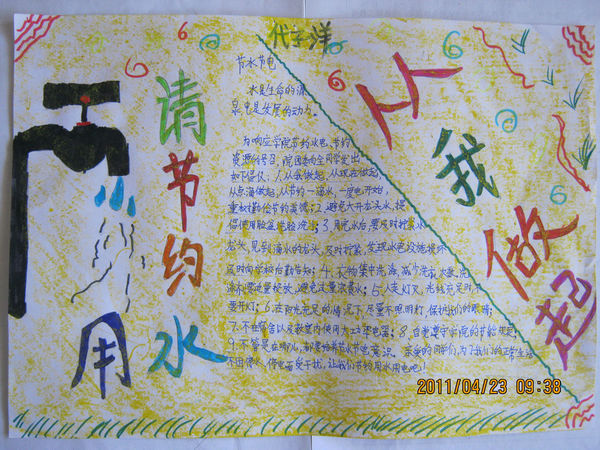 代子洋
请节约用水
从我做起
节水节电
水是生命的源
泉,电是发展的动力。
为响应学院节约水电、节约
资源的号召,院团委向全同学发出
如下倡议:1.从我做起,从现在做起,
从点滴做起,从节约一滴水,一度电开始,
重板勤俭节约美德;2.避免大开龙头水,提
倡使用脸盆洗脸洗手;3.用完水后,要及时拧紧水
龙头,见到滴水的龙头,及时拧紧,发现水电设施损坏
应时向学校后勤告知;4.衣物集中洗涤,减少洗衣次数,洗
涤添要适量投放,避免过量浪费水;5.人走灯灭,光线充足时不
要开灯;6.在阳光充足的情况下,尽量不照明灯,保护我们的眼睛;
7.不在宿舍以及教室内使用大功率电器;8.自觉遵守学院的节能规定;
9.不管是在哪儿,都要培养节水节电意识。亲爱的同学们,为了我们的正常生活
不因停水、停电而受干扰,让我们节约用水用电吧!!
2011/04/23 09:38